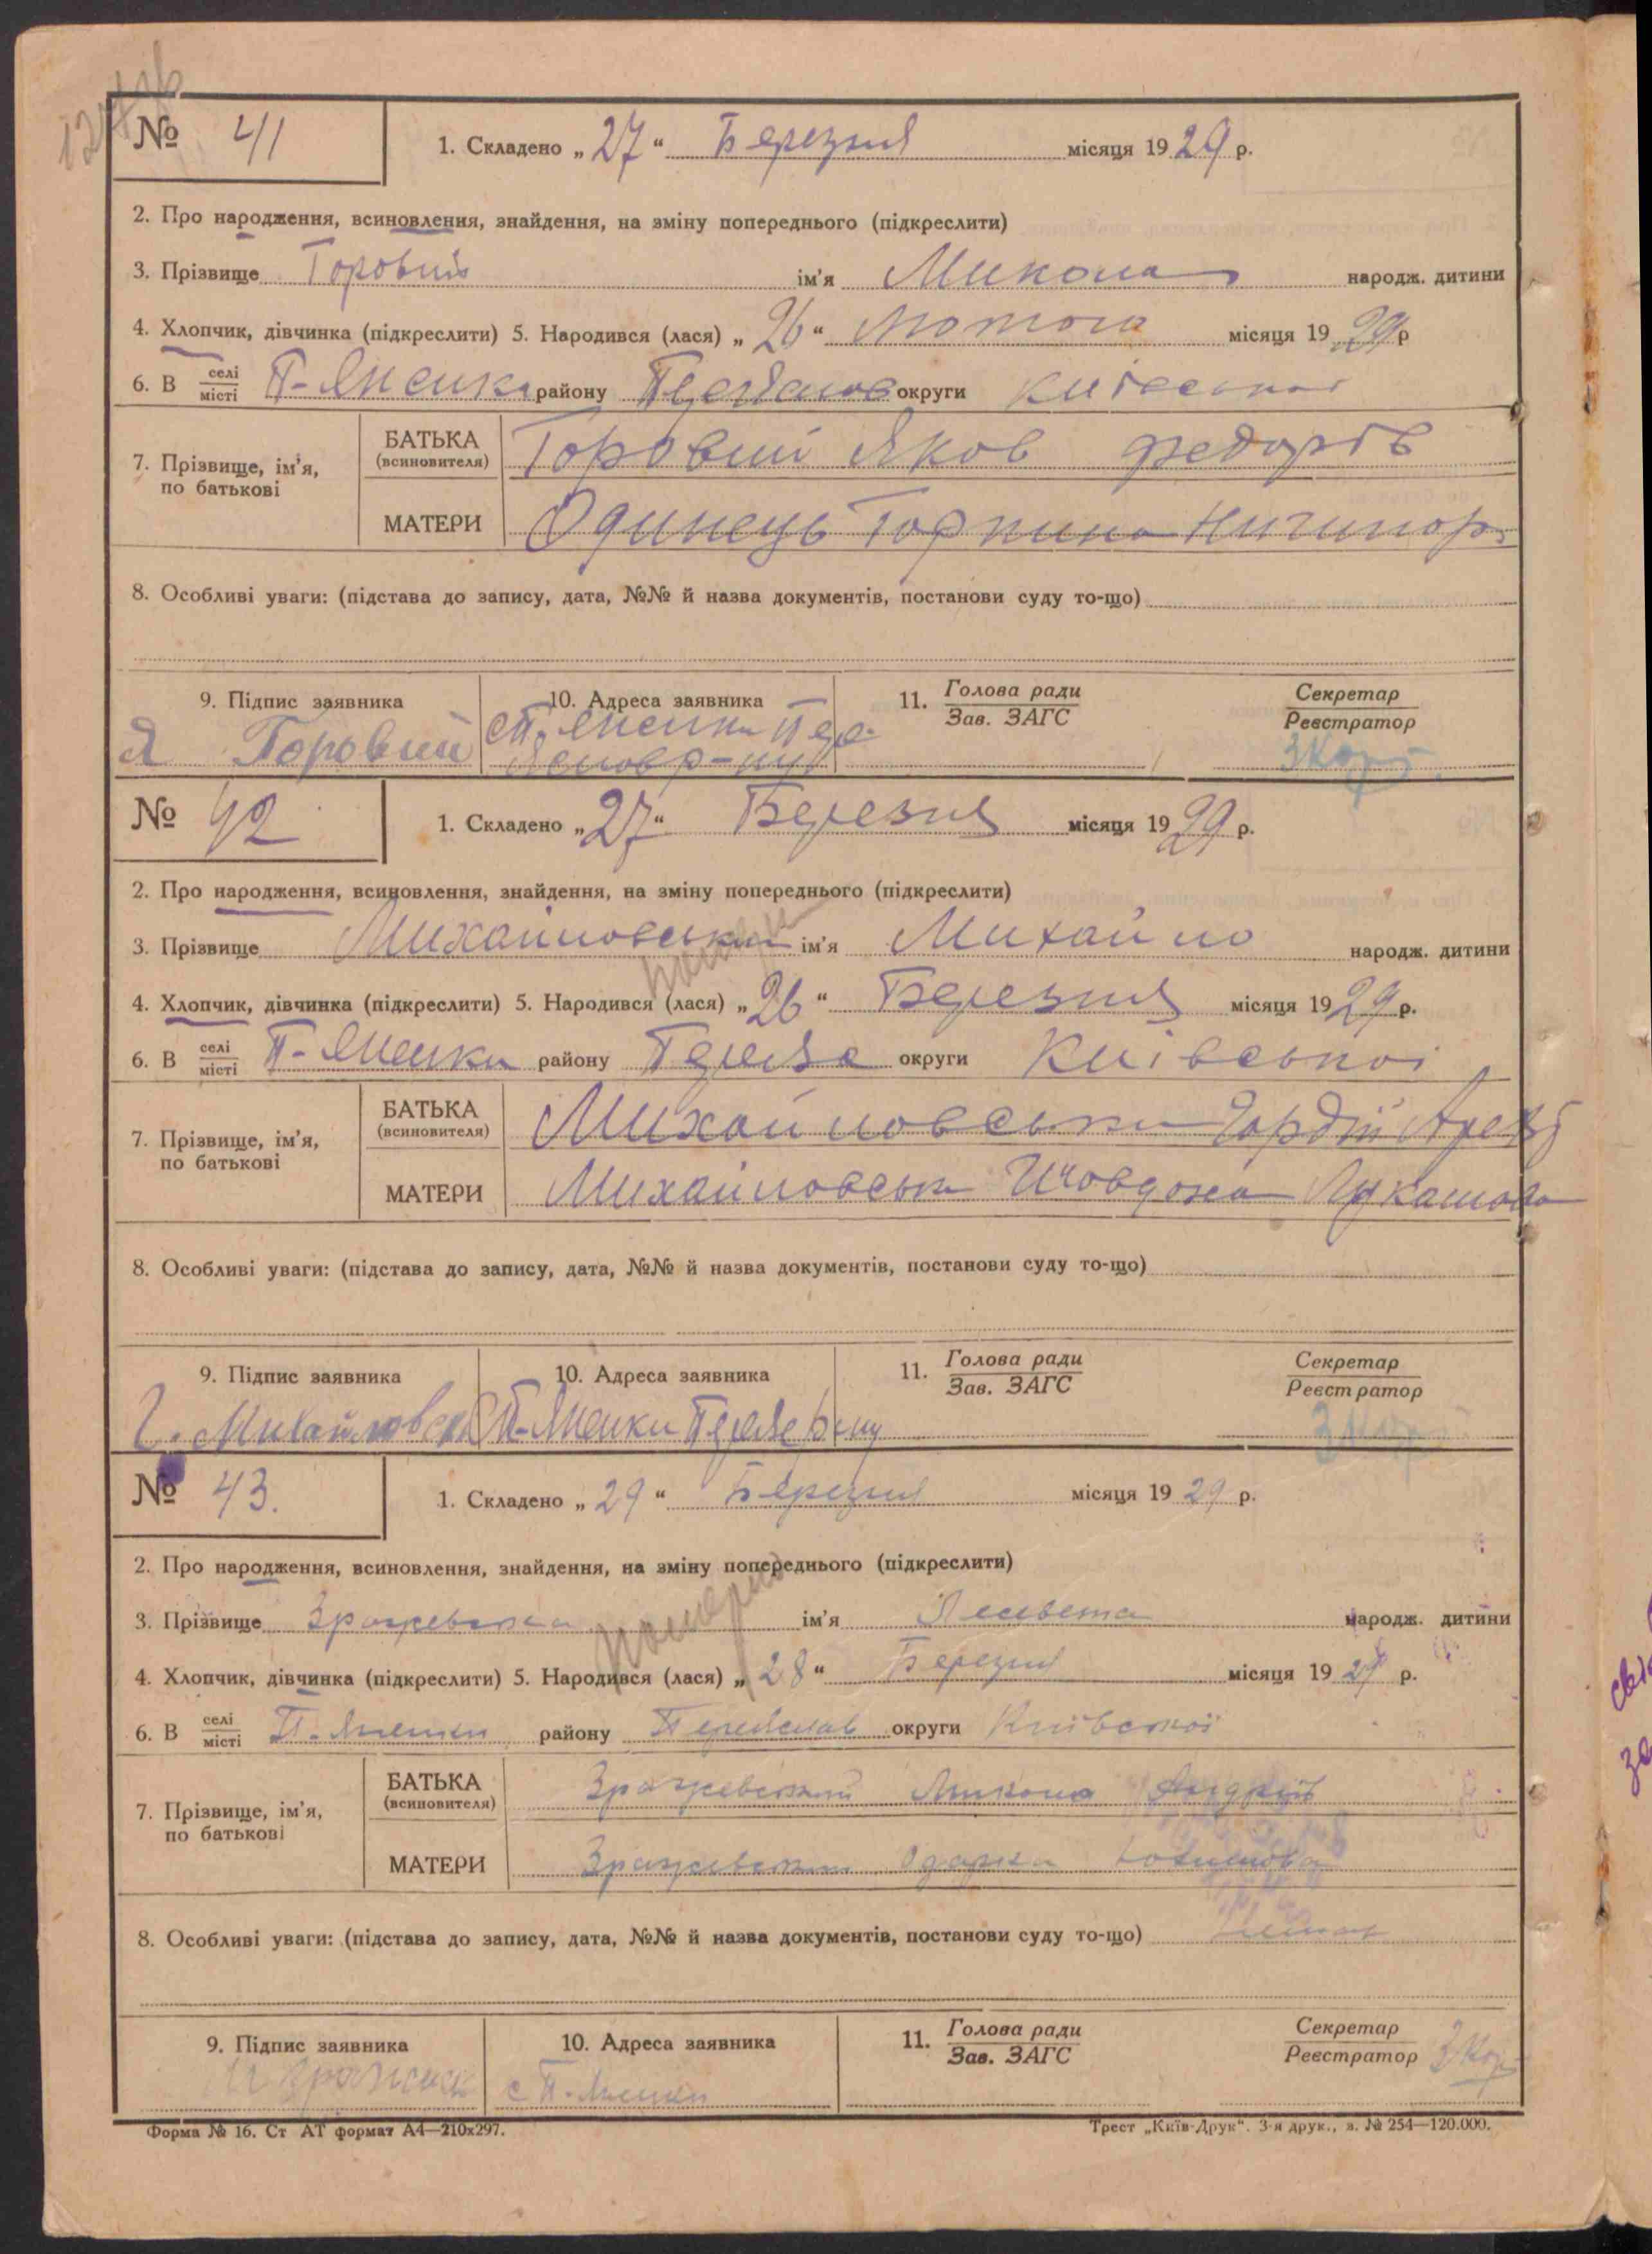 № 41
1. Складено „ 27 “ Березня місяця 19 29 р.
2. Про народження, всиновлення, знайдення, на зміну попереднього (підкреслити)
3. Прізвище Горовий ім'я Микола народж. дитини
4. Хлопчик, дівчинка (підкреслити) 5. Народився (лася) „ 26 “ Лютого місяця 19 29 р
6. В селі місті П-Яненки району округи Київської
7. Прізвище, ім'я, по батькові
БАТЬКА (всиновителя) Горовий Яков Федорів
МАТЕРИ Одинець Горпина Ничипор.
8. Особливі уваги: (підстава до запису, дата, №№ й назва документів, постанови суду то-що)
9. Підпис заявника 10. Адреса заявника 11. Голова ради Зав. ЗАГС Секретар Реєстратор
Я Горовий с П-Яненки Пере-
№ 42
1. Складено „ 27 “ Березня місяця 19 29 р.
2. Про народження, всиновлення, знайдення, на зміну попереднього (підкреслити)
3. Прізвище Михайловський ім'я Михайло народж. дитини
4. Хлопчик, дівчинка (підкреслити) 5. Народився (лася) „ 26 “ Березня місяця 19 29 р.
6. В селі місті П-Яненки району округи Київської
7. Прізвище, ім'я, по батькові
БАТЬКА (всиновителя) Михайловськи Гордій
МАТЕРИ Михайловськ Лукашова
8. Особливі уваги: (підстава до запису, дата, №№ й назва документів, постанови суду то-що)
9. Підпис заявника 10. Адреса заявника 11. Голова ради Зав. ЗАГС Секретар Реєстратор
Г. Михайловськ П-Яненки
№ 43.
1. Складено „ 29 “ Березня місяця 19 29 р.
2. Про народження, всиновлення, знайдення, на зміну попереднього (підкреслити)
3. Прізвище Зражевська ім'я Лесевета народж. дитини
4. Хлопчик, дівчинка (підкреслити) 5. Народився (лася) „ 28 “ Березня місяця 19 29 р.
6. В селі місті П-Яненки району Переяслав округи Київської
7. Прізвище, ім'я, по батькові
БАТЬКА (всиновителя) Зражевський Микола Андріїв
МАТЕРИ Зражевська Одарка
8. Особливі уваги: (підстава до запису, дата, №№ й назва документів, постанови суду то-що)
9. Підпис заявника 10. Адреса заявника 11. Голова ради Зав. ЗАГС Секретар Реєстратор
с П-Яненки
Форма № 16. Ст АТ формат А4—210х297. Трест „Київ-Друк“. 3-я друк., з. № 254—120.000.